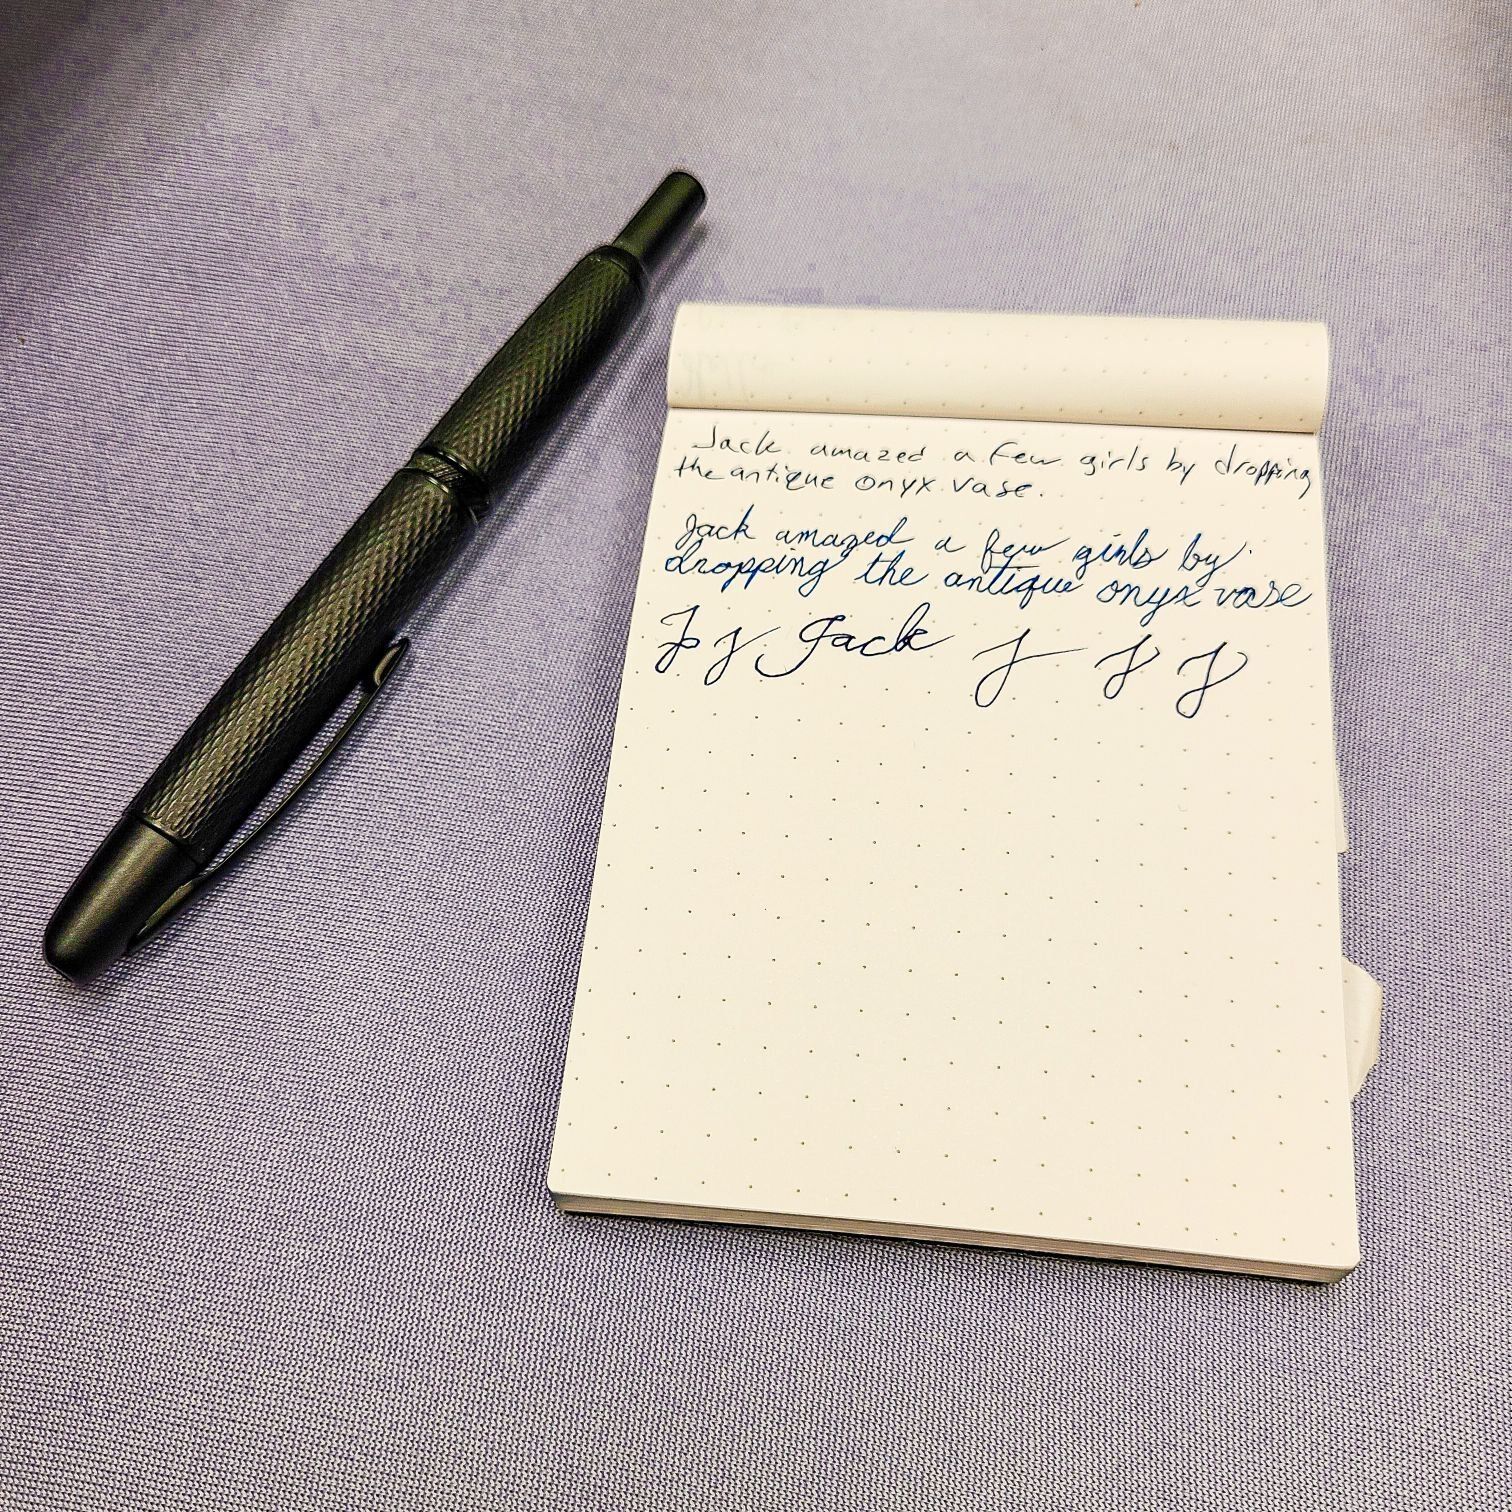 Jack amazed a few girls by dropping
the antique onyx vase.
Jack amazed a few girls by
dropping the antique onyx vase
J J Jack J J J